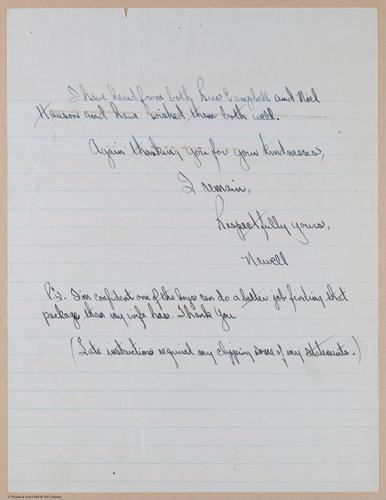 I have heard from both Russ Campbell and Noel
Hanson and have wished them both well.
Again thanking you for your kindnesses,
I remain,
Respectfully yours,
Newell
P.S. I'm confident one of the boys can do a better job finding that
package than my wife has. Thank You
(Late instructions required my clipping some of my statements.)